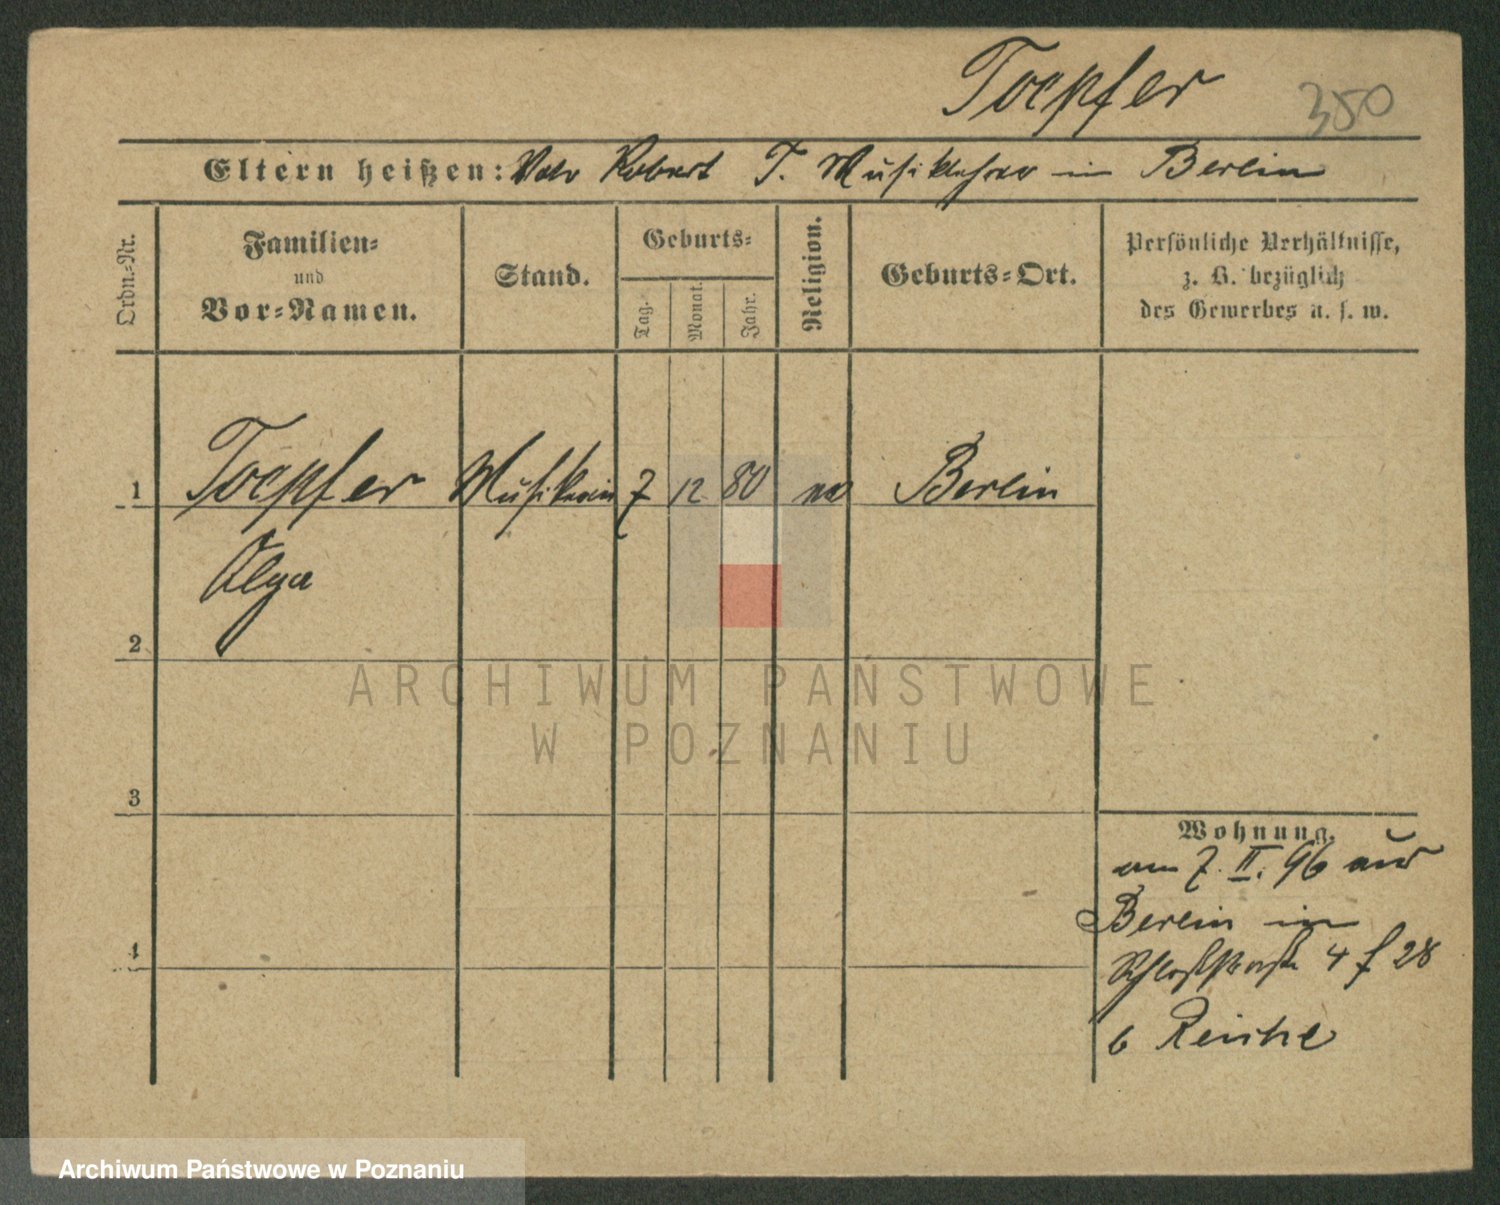 Toepfer 350
Eltern heißen: Vater Robert T. Musiklehrer in Berlin
Ordn.-Nr.
Familien-
und
Vor-Namen.
Stand.
Geburts-
Tag.
Monat.
Jahr.
Religion.
Geburts-Ort.
Persönliche Verhältnisse,
z. B. bezüglich
des Gewerbes u. s. w.
1 Toepfer Musikerin 7 12 80 ev Berlin
Olga
2
3
4
Wohnung.
am 7. II. 96 aus
Berlin in
Schloßstraße 4 f 28
b Reiche
ARCHIWUM PAŃSTWOWE
W POZNANIU
Archiwum Państwowe w Poznaniu